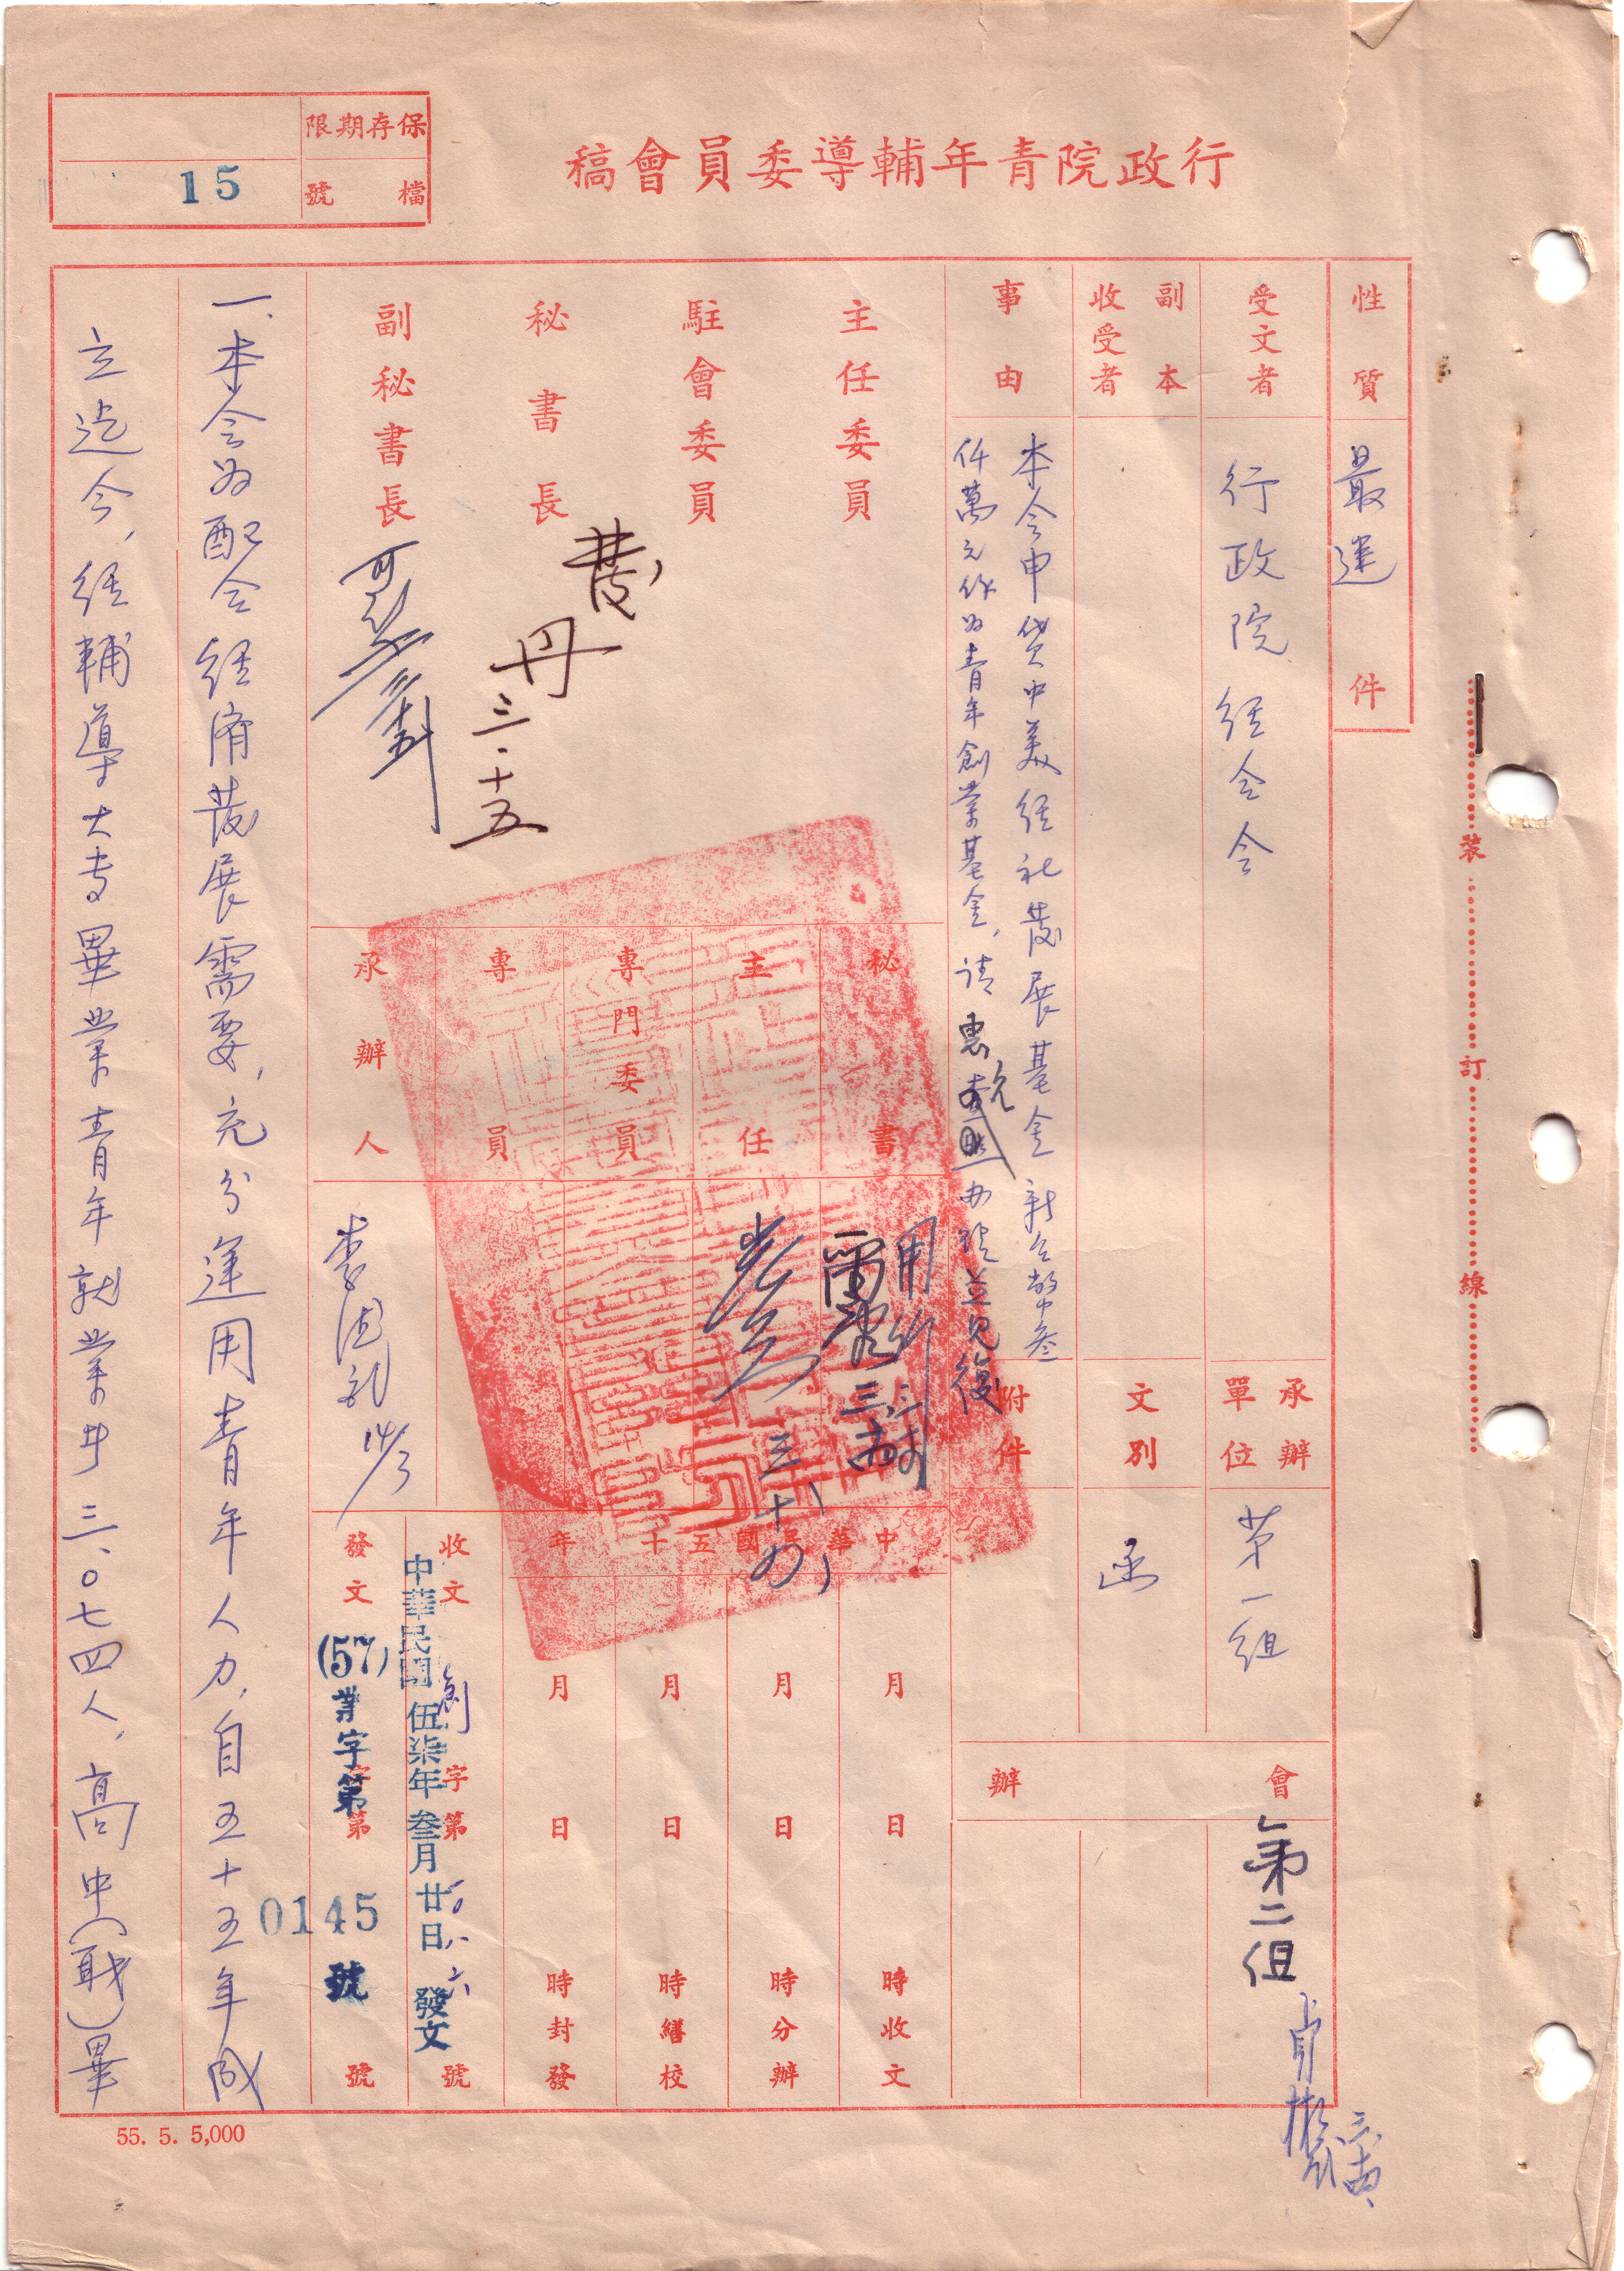 行政院青年輔導委員會稿
保存期限
檔號
15
性質
最速
件
受文者
行政院經合會
副本收受者
事由
本會申貸中美經社發展基金新台幣叁
仟萬元作為青年創業基金，請惠允
辦理並見復
承辦單位
第一組
文別
函
附件
會辦
第二組
主任委員
駐會委員
秘書長
發
三．十五
副秘書長
秘書
主任
專門委員
專員
承辦人
中華民國五十年
月日時收文
月日時分辦
月日時繕校
月日時封發
收文
創字第
號
中華民國伍柒年叁月廿日發文
發文
(57)
業字第
0145
號
一、本會為配合經濟發展需要，充分運用青年人力，自五十五年成
立迄今，經輔導大專畢業青年就業廿三．○七四人，高中（職）畢
55. 5. 5,000
裝
訂
線